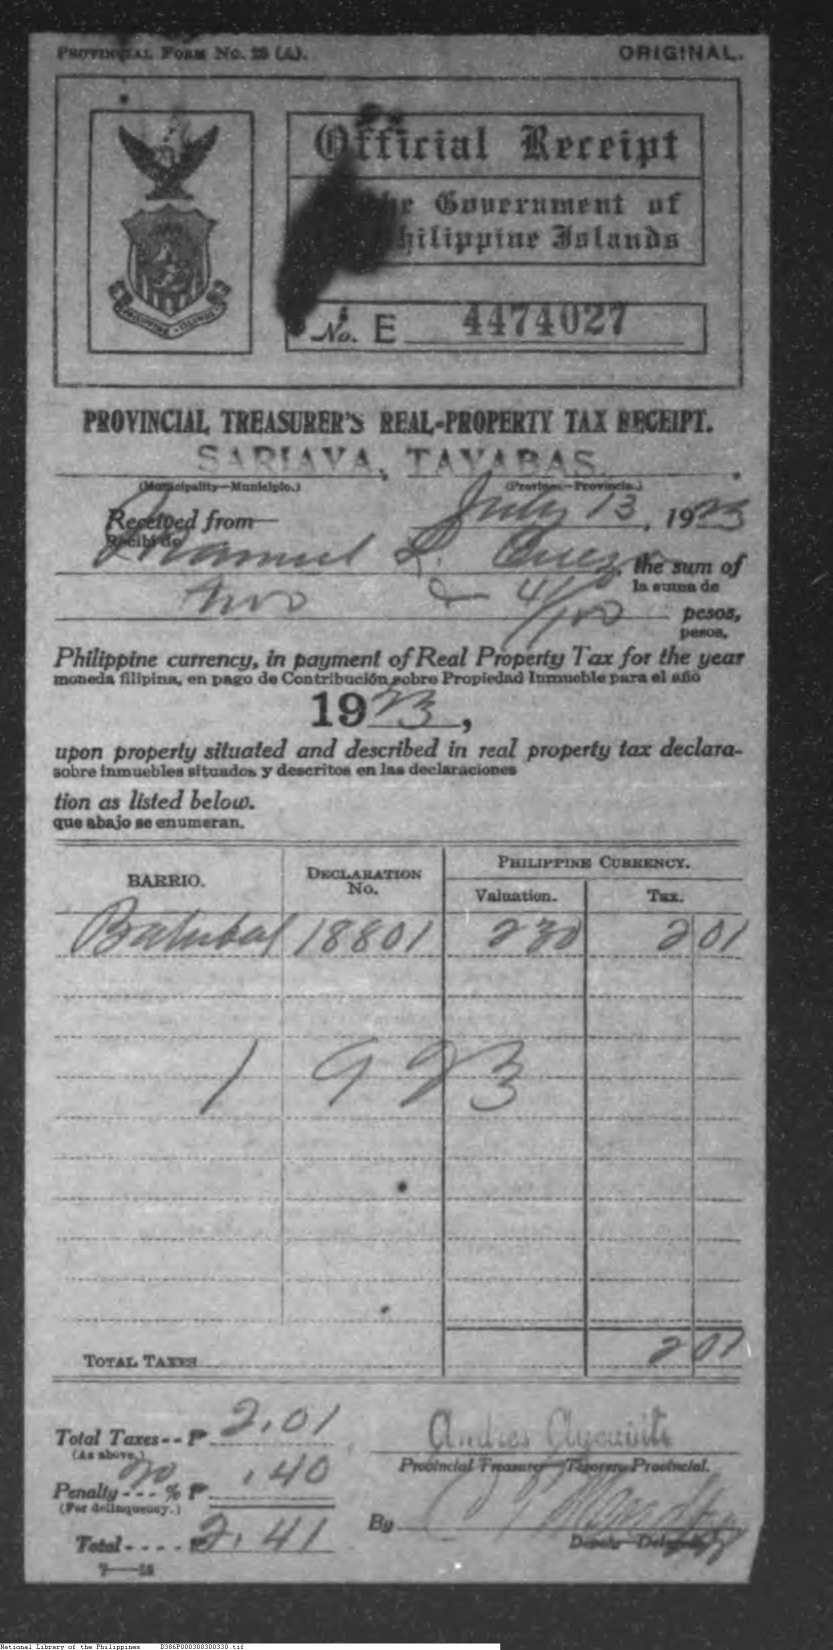 PROVINCIAL FORM No. 25 (A).
ORIGINAL.
Official Receipt
the Government of
Philippine Islands
PHILIPPINE ISLANDS
No. E 4474027
PROVINCIAL TREASURER'S REAL-PROPERTY TAX RECEIPT.
SARIAYA, TAYABAS.
(Municipality—Municipio.) (Province—Provincia.)
July 13, 1923
Received from
Recibí de
Manuel L. Quezon, the sum of
la suma de
two & 41/100 pesos,
pesos,
Philippine currency, in payment of Real Property Tax for the year
moneda filipina, en pago de Contribución sobre Propiedad Inmueble para el año
1923,
upon property situated and described in real property tax declara-
sobre inmuebles situados y descritos en las declaraciones
tion as listed below.
que abajo se enumeran.
BARRIO. DECLARATION No. PHILIPPINE CURRENCY.
Valuation. Tax.
18801 230 2 01
1923
TOTAL TAXES 2 01
Total Taxes-- ₱ 2.01
(As above.)
Andres
Provincial Treasurer—Tesorero Provincial.
Penalty 20 % ₱ .40
(For delinquency.)
By
Deputy—Delegado
Total---- ₱ 2.41
National Library of the Philippines D386P000300300330.tif